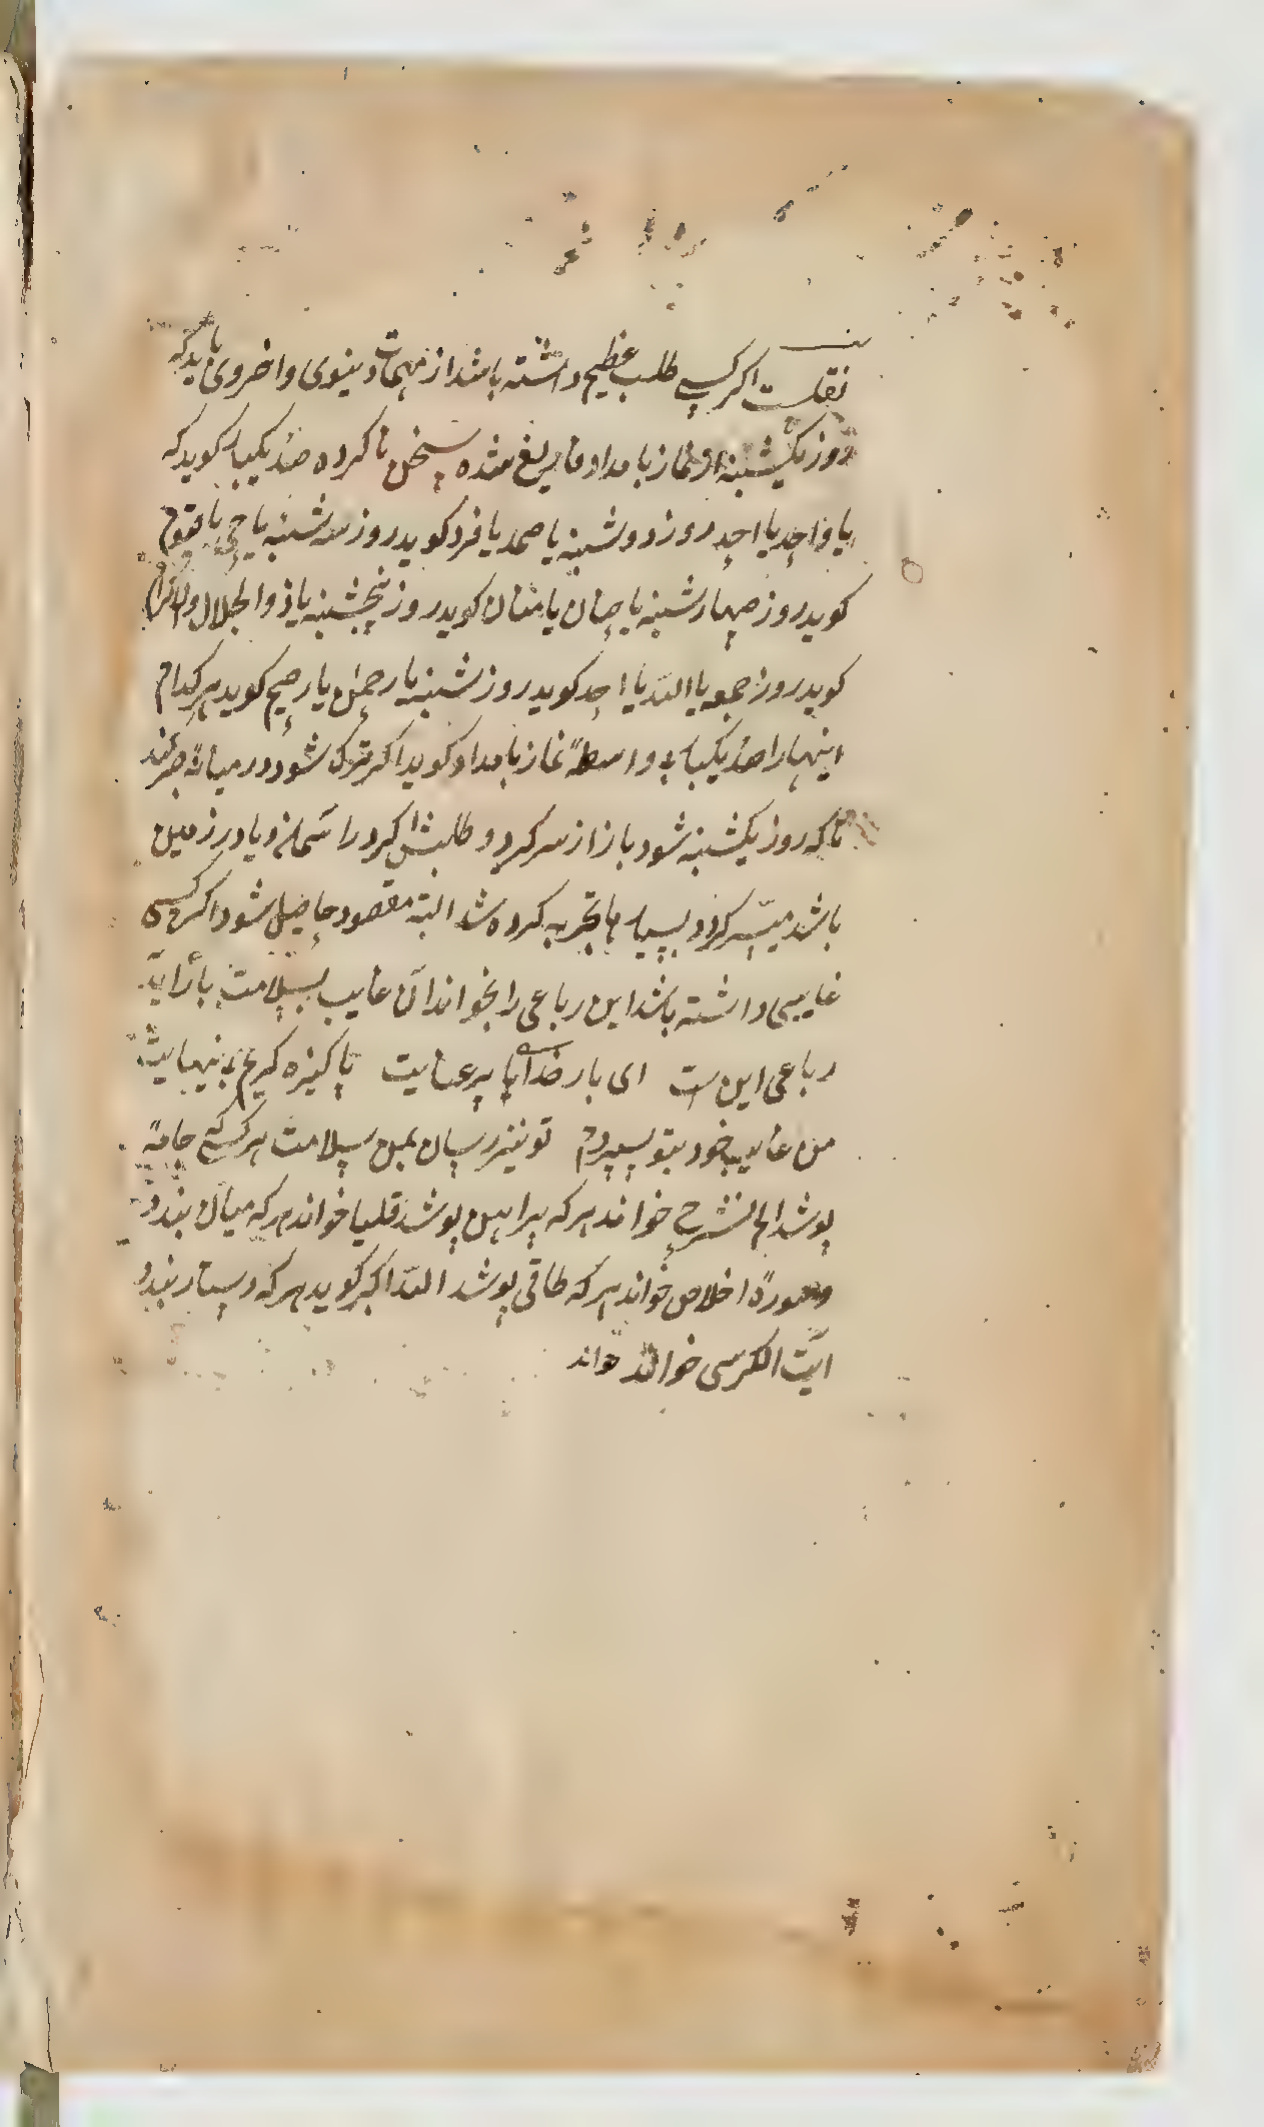 نقلست اگر کسی طلب عظیم داشته باشد از مهمات دینوی و اخروی باید که
روز یکشنبه از نماز بامداد فارغ شده سخن نا کرده صد یکبار کوید که
یا واحد یا احد روز دوشنبه یا صمد یا فرد کوید روز سه شنبه یا حی یا قیوم
کوید روز چهار شنبه یا حنان یا منان کوید روز پنجشنبه یا ذو الجلال والاکرام
کوید روز جمعه یا الله یا احد کوید روز شنبه یا رحمن یا رحیم کوید هر کدام
اینها را صد یکبار بواسطهٔ نماز بامداد کوید اکر ترک شود در میانه صبر کند
تا که روز یکشنبه شود باز از سر کیرد و طلبش اکر در آسمان و یا در زمین
باشد میسر کردد بسیار ها تجربه کرده شد البته مقصود حاصل شود اکر کسی
غایبی داشته باشد این رباعی را بخواند آن غایب بسلامت باز آید
رباعی این ست ای بار خدایا پر عنایت پاکیزه کریم بی نهایت
من غایب خود بتو سپردم تو نیز رسان بمن سلامت هر کسی که جامهٔ
پوشد الم نشرح خواند هر که پیراهن پوشد قلیا خواند هر که میان بندد
سورهٔ اخلاص خواند هر که طاقی پوشد الله اکبر کوید هر که دستار بندد
آیت الکرسی خواند خواند